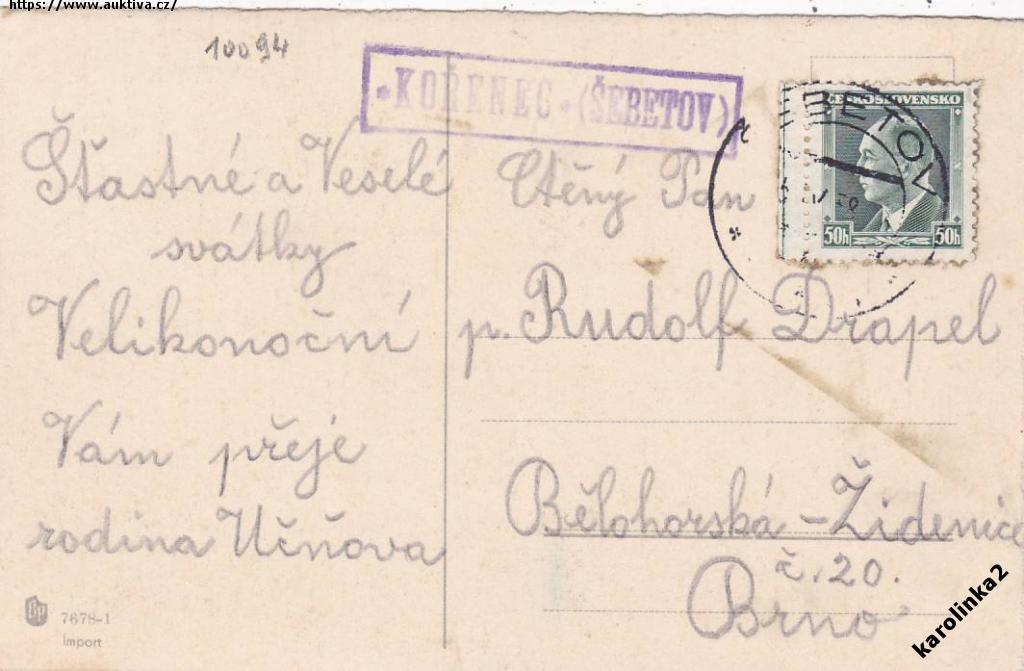 https://www.auktiva.cz/
10094
*KOŘENEC*(ŠEBETOV)
ČESKOSLOVENSKO
50h 50h
ŠEBETOV
Šťastné a Veselé
svátky
Velikonoční
Vám přeje
rodina Učňova
Ctěný Pan
p. Rudolf Drapel
Bělohorská - Židenice
č. 20.
Brno
7678-1
Import
karolinka2